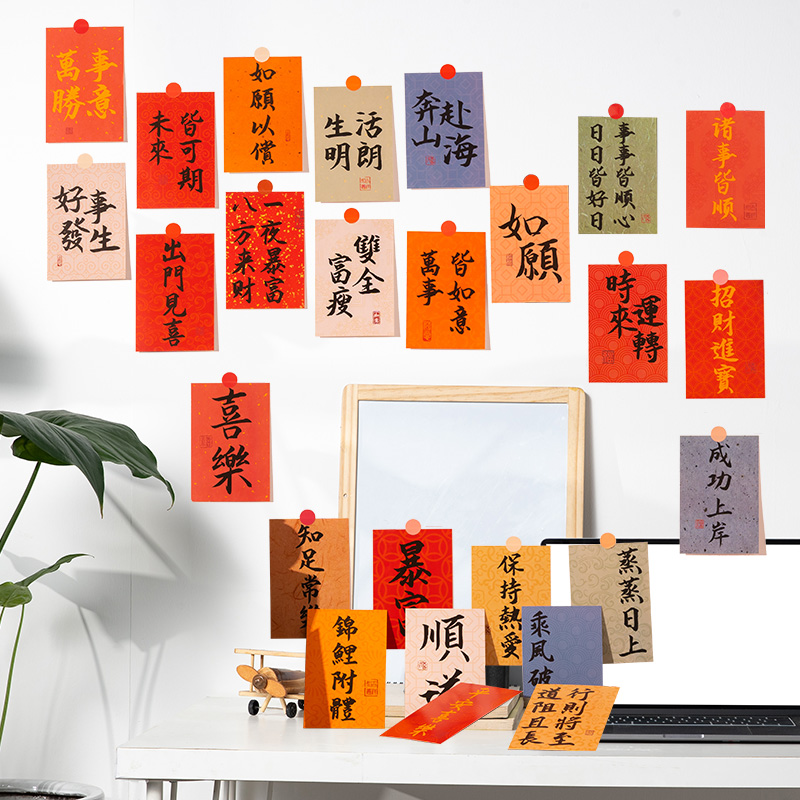 萬事
勝意
未來
皆可期
如願以償
生活
明朗
奔山
赴海
事事皆順心
日日皆好日
諸事皆順
好事
發生
出門見喜
一夜暴富
八方来財
富瘦
雙全
萬事
皆如意
如願
時來
運轉
招財進寶
喜樂
成功上岸
知足常樂
暴富
保持熱愛
蒸蒸日上
錦鯉附體
順
乘風破
平安喜樂
道阻且長
行則將至